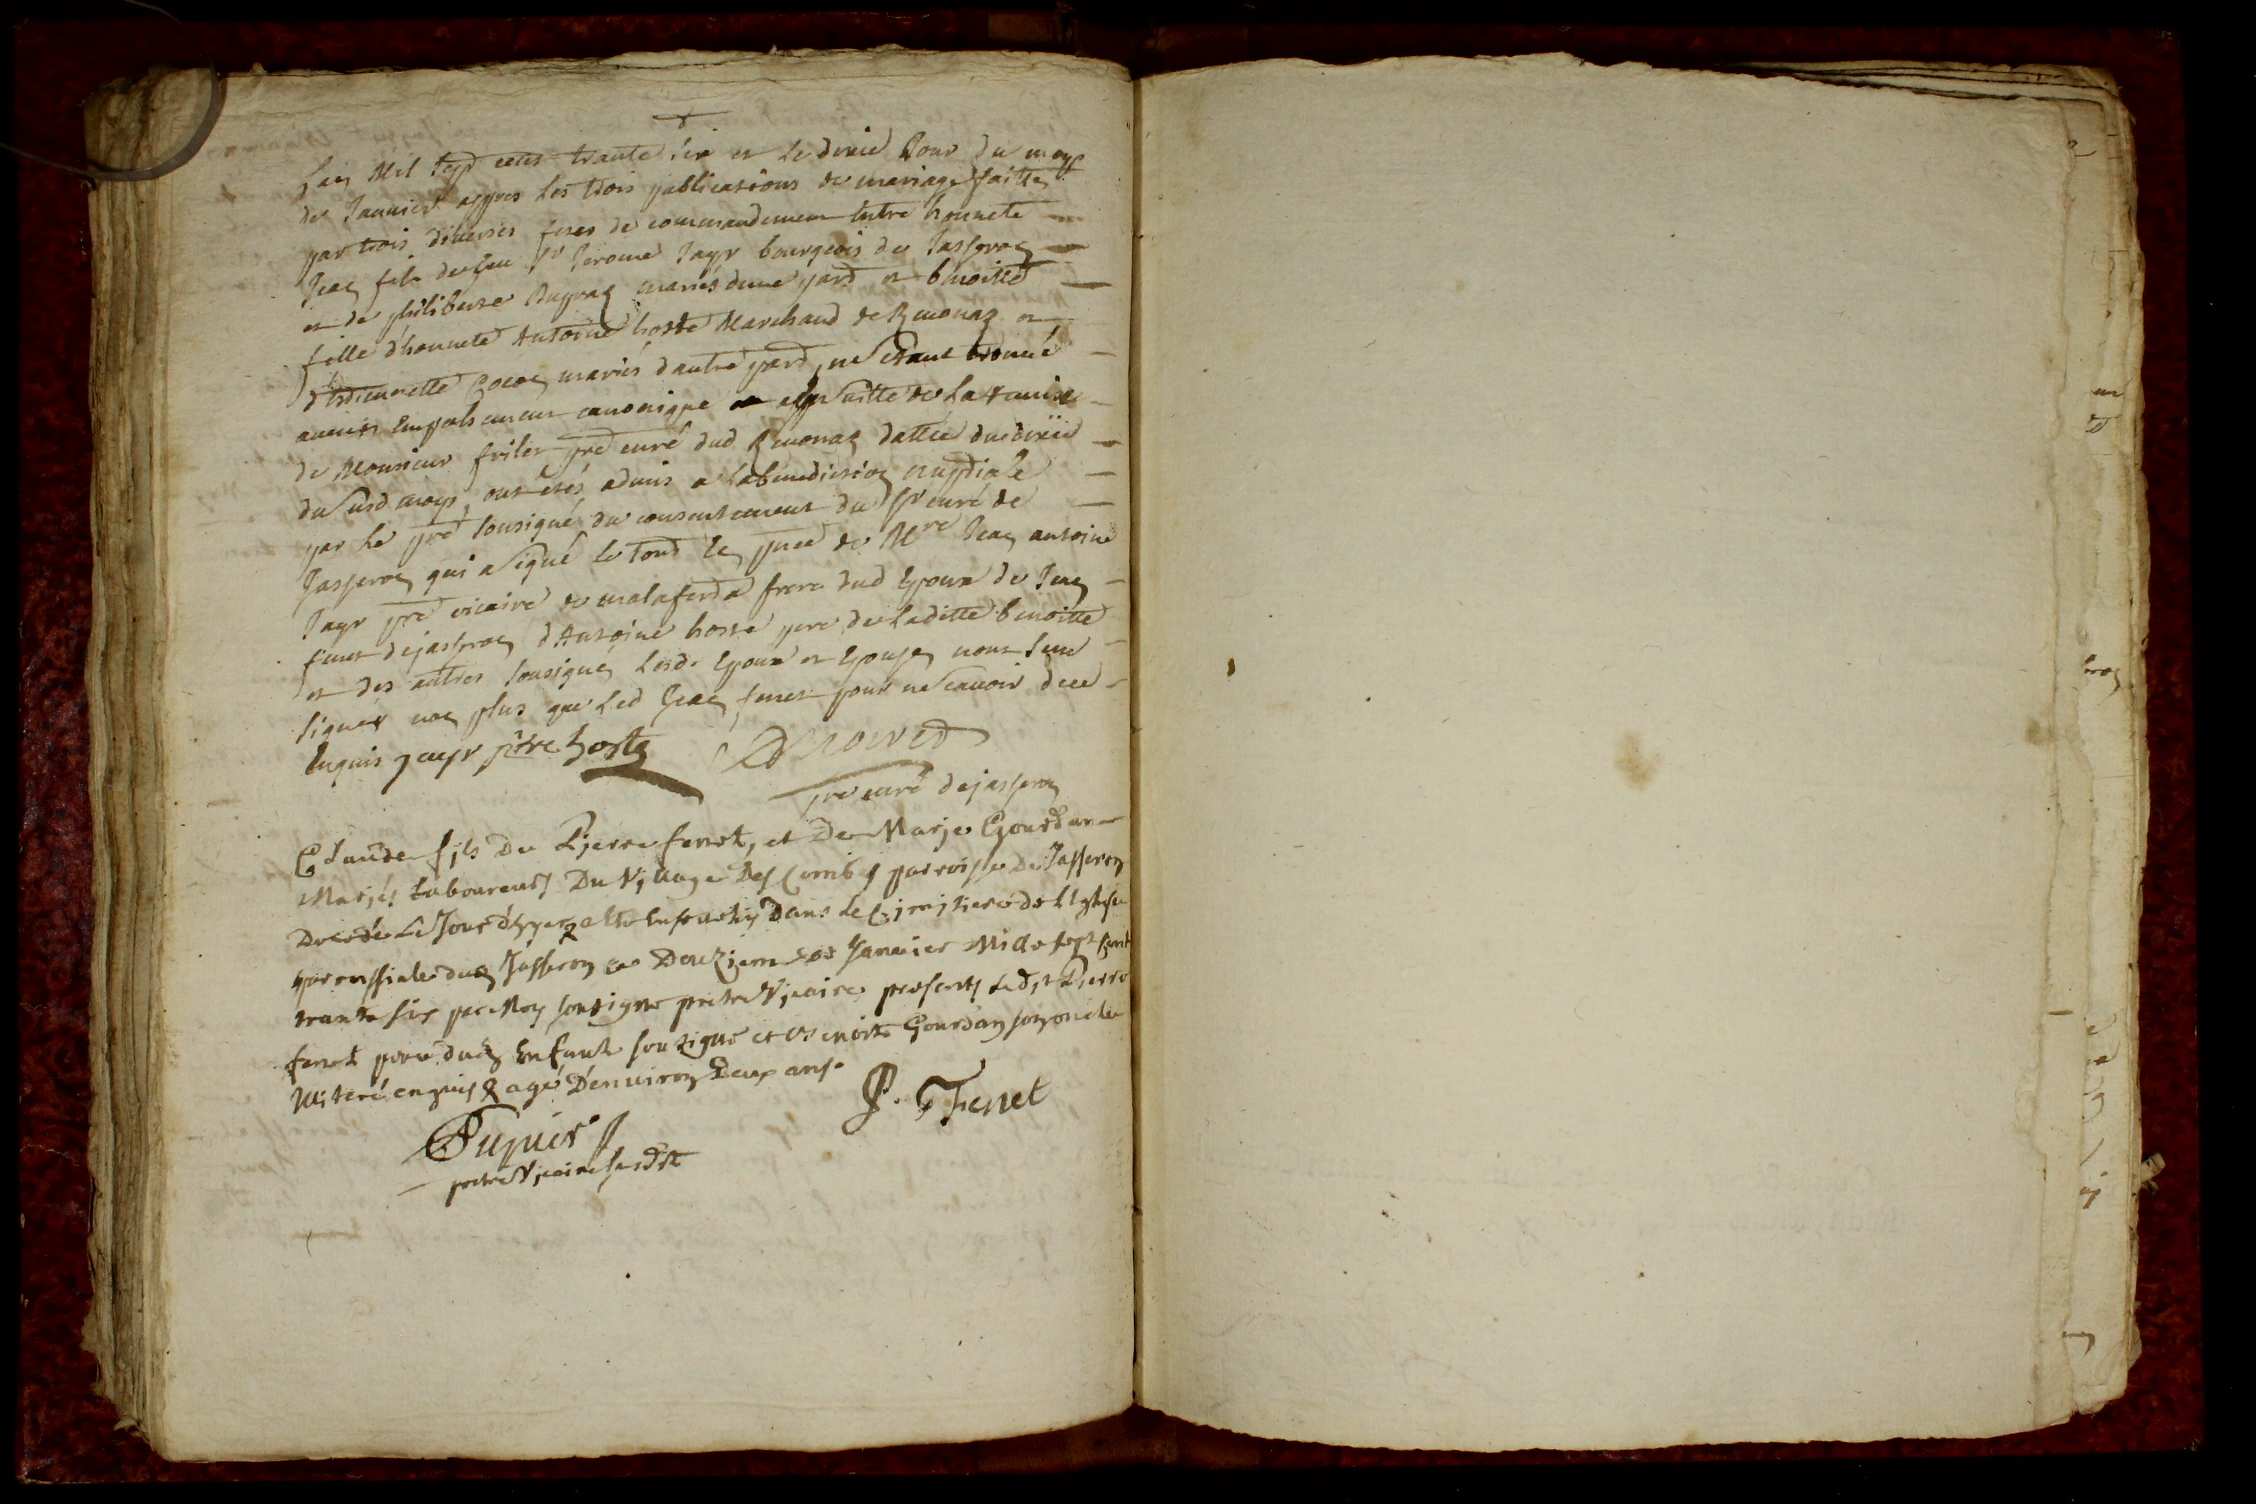 Lan Mil sept cent trante six et le dixie Jour du moys
de Janvier appres les trois publications de mariage faitte
par trois diverses festes de commandement entre honnete
Jean fils de feu Sr Jerome Jayr bourgeois de Jasseron
et de philiberte Dupras mariés dune pard et benoitte
fille d'honnete Antoine hoste Marchand de Revonas et
d'Estiennette mariés dautre pard, ne sétant trouvé
aucun Empeschement canonique et en suitte de la remise
de Monsieur pre curé dud Revonas dattée du dixie
du susd moys, ont étés admis a la benediction nuptiale
par le pre sousigné du consentement du Sr curé de
Jasseron qui a signé le tout En pnce de Mre Jean antoine
Jayr pre vicaire de malafertaz frere dud Epoux de Jean
fenet de jasseron d'Antoine hoste pere de laditte benoitte
et des autres sousignes Lesd. Epoux et Epouse nont sceu
signer non plus que Led Jean fenet pour ne scavoir de ce
Enquis jayr ptre hoste
pre curé de jasseron
Claude fils De Pierre fenet, et De Marie Gourdan
Mariés Laboureurs Du Village Des Combes parroisse De Jasseron
Decedé Le Jour d'hyer & a Eté Ensevely Dans Le Cimitiere de L'Eglise
parroissiale dud Jasseron ce Douzieme de Janvier Mille sept cent
trante six par Moy soussigne pretre Vicaire presents Ledit Pierre
fenet pere dud Enfant souzigné et Benoit Gourdan son oncle
illiteré enquis & agé D'environ Deux ans.
P. Fenet
Dupuis
pretre Vicaire susdit